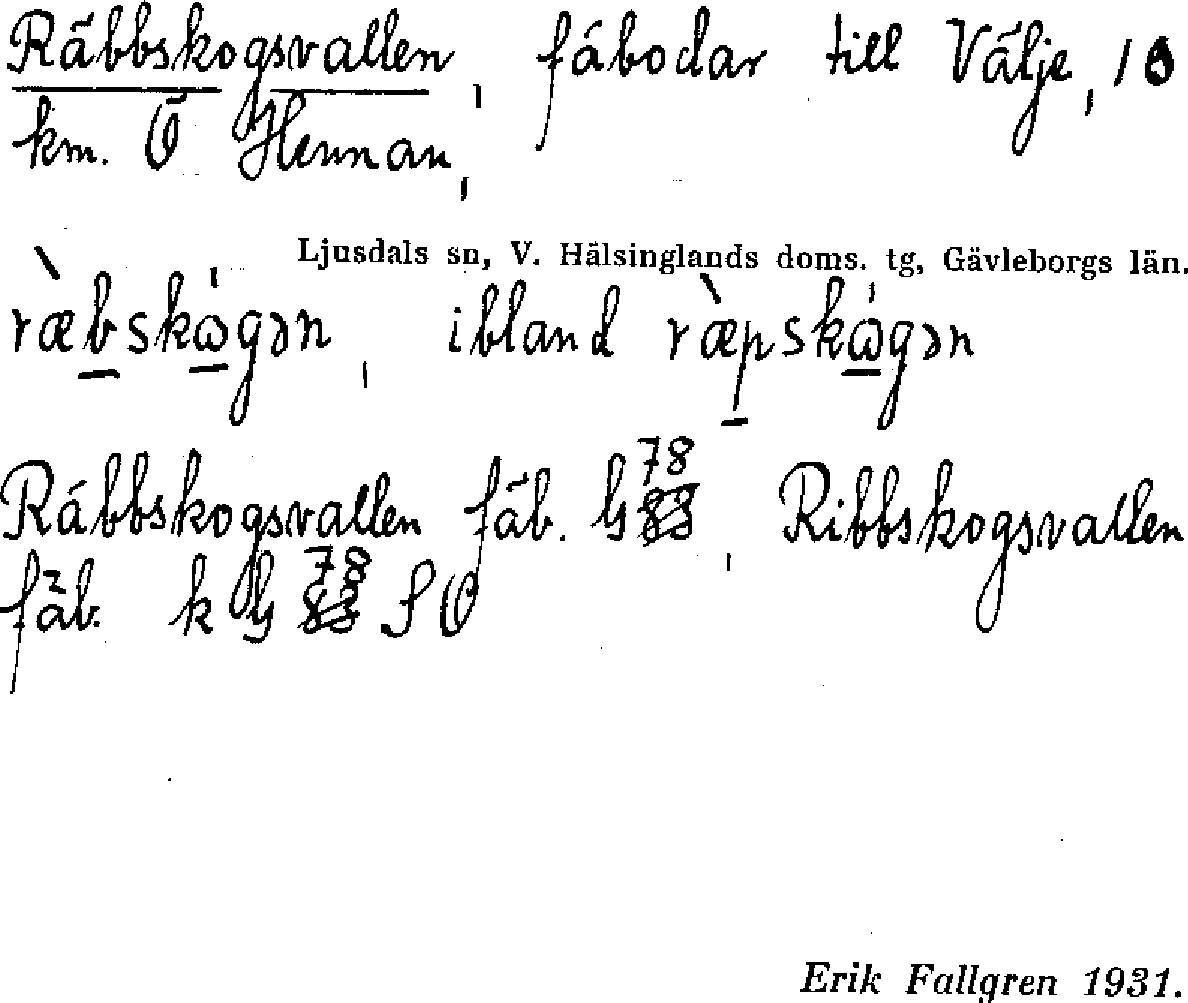 Räbbskogsvallen, fäbodar till Välje, 10
km. Ö Hennan,
Ljusdals sn, V. Hälsinglands doms. tg, Gävleborgs län.
ræbskωgən, ibland ræpskωgən
Räbbskogsvallen fäb. G 78, Ribbskogsvallen
fäb. k G 78 SO
Erik Fallgren 1931.